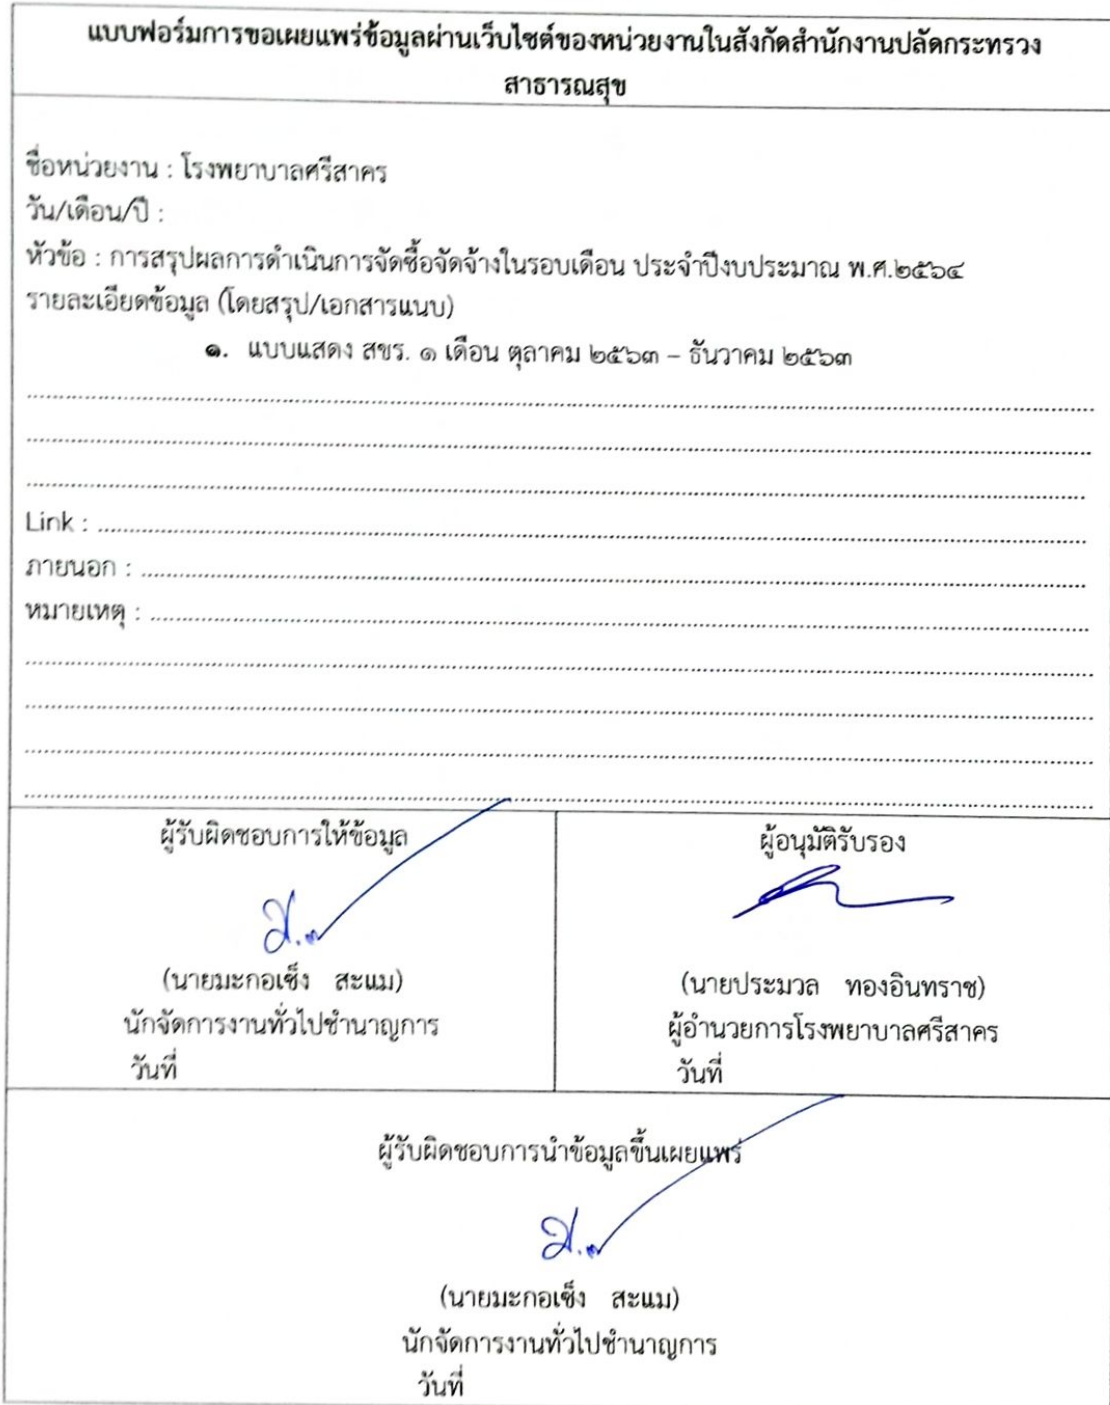 แบบฟอร์มการขอเผยแพร่ข้อมูลผ่านเว็บไซต์ของหน่วยงานในสังกัดสำนักงานปลัดกระทรวง
สาธารณสุข
ชื่อหน่วยงาน : โรงพยาบาลศรีสาคร
วัน/เดือน/ปี :
หัวข้อ : การสรุปผลการดำเนินการจัดซื้อจัดจ้างในรอบเดือน ประจำปีงบประมาณ พ.ศ.๒๕๖๔
รายละเอียดข้อมูล (โดยสรุป/เอกสารแนบ)
๑. แบบแสดง สขร. ๑ เดือน ตุลาคม ๒๕๖๓ – ธันวาคม ๒๕๖๓
Link :
ภายนอก :
หมายเหตุ :
ผู้รับผิดชอบการให้ข้อมูล
(นายมะกอเซ็ง สะแม)
นักจัดการงานทั่วไปชำนาญการ
วันที่
ผู้อนุมัติรับรอง
(นายประมวล ทองอินทราช)
ผู้อำนวยการโรงพยาบาลศรีสาคร
วันที่
ผู้รับผิดชอบการนำข้อมูลขึ้นเผยแพร่
(นายมะกอเซ็ง สะแม)
นักจัดการงานทั่วไปชำนาญการ
วันที่